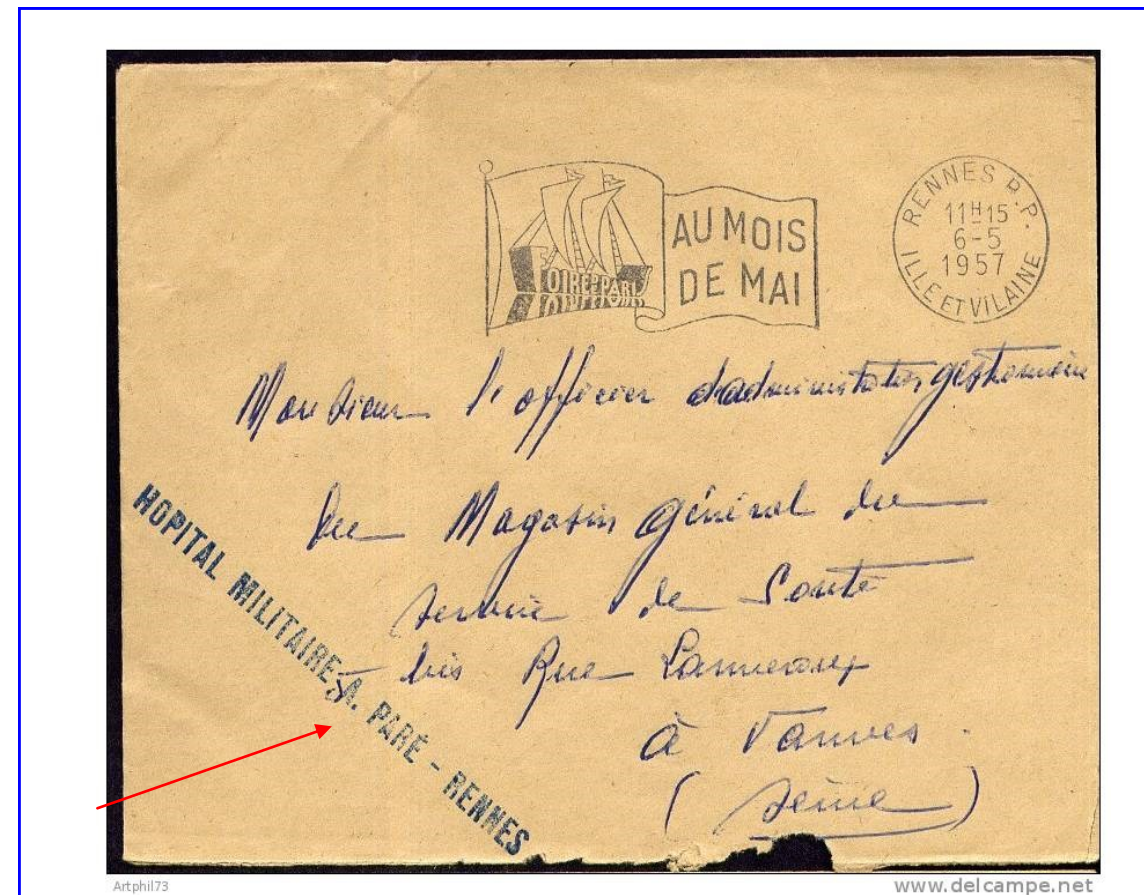 FOIRE DE PARIS
AU MOIS
DE MAI
RENNES R.P.
11H15
6-5
1957
ILLE ET VILAINE
Monsieur l'officier d'administration gestionnaire
du Magasin Général du
Service de Santé
bis Rue
à Vanves
(Seine)
HOPITAL MILITAIRE A. PARÉ - RENNES
Artphil73
www.delcampe.net